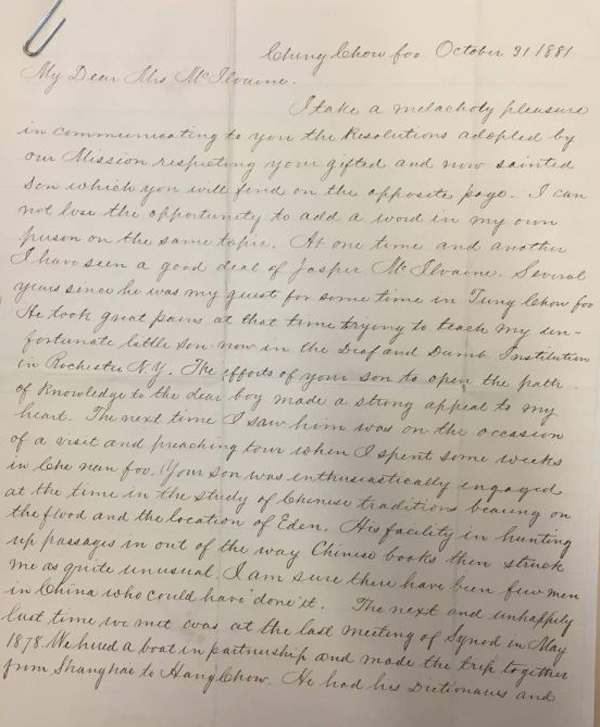 Ching Chow foo October 31 1881
My Dear Mrs McIlvaine.
I take a melacholy pleasure
in communicating to you the Resolutions adopted by
our Mission respecting your gifted and now sainted
Son which you will find on the opposite page. I can
not lose the opportunity to add a word in my own
person on the same topic. At one time and another
I have seen a good deal of Jasper McIlvaine. Several
years since he was my guest for some time in Tung Chow foo
He took great pains at that time trying to teach my un-
fortunate little son now in the Deaf and Dumb Institution
in Rochester N.Y. The efforts of your son to open the path
of knowledge to the dear boy made a strong appeal to my
heart. The next time I saw him was on the occasion
of a visit and preaching tour when I spent some weeks
in Che nan foo. Your son was enthusiastically engaged
at the time in the study of Chinese traditions bearing on
the flood and the location of Eden. His facility in hunting
up passages in out of the way Chinese books then struck
me as quite unusual. I am sure there have been few men
in China who could have done it. The next and unhappily
last time we met was at the last meeting of Synod in May
1878. We hired a boat in partnership and made the trip together
from Shanghai to Hang Chow. He had his Dictionaries and